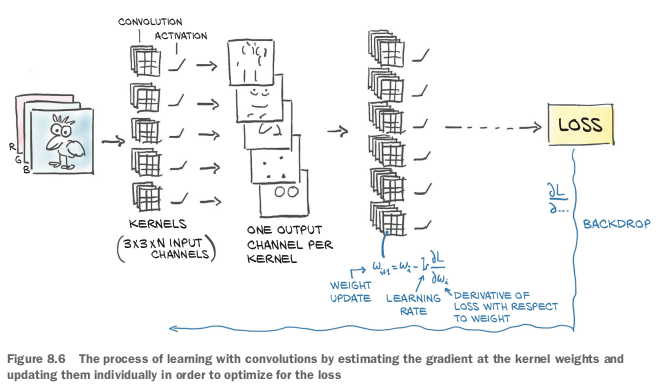 CONVOLUTION
ACTIVATION
R
G
B
KERNELS
(3X3XN INPUT
CHANNELS)
ONE OUTPUT
CHANNEL PER
KERNEL
LOSS
∂L
∂...
BACKDROP
ωᵢ₊₁=ωᵢ - lr ∂L
∂ωᵢ
WEIGHT
UPDATE
LEARNING
RATE
DERIVATIVE OF
LOSS WITH RESPECT
TO WEIGHT
Figure 8.6 The process of learning with convolutions by estimating the gradient at the kernel weights and
updating them individually in order to optimize for the loss